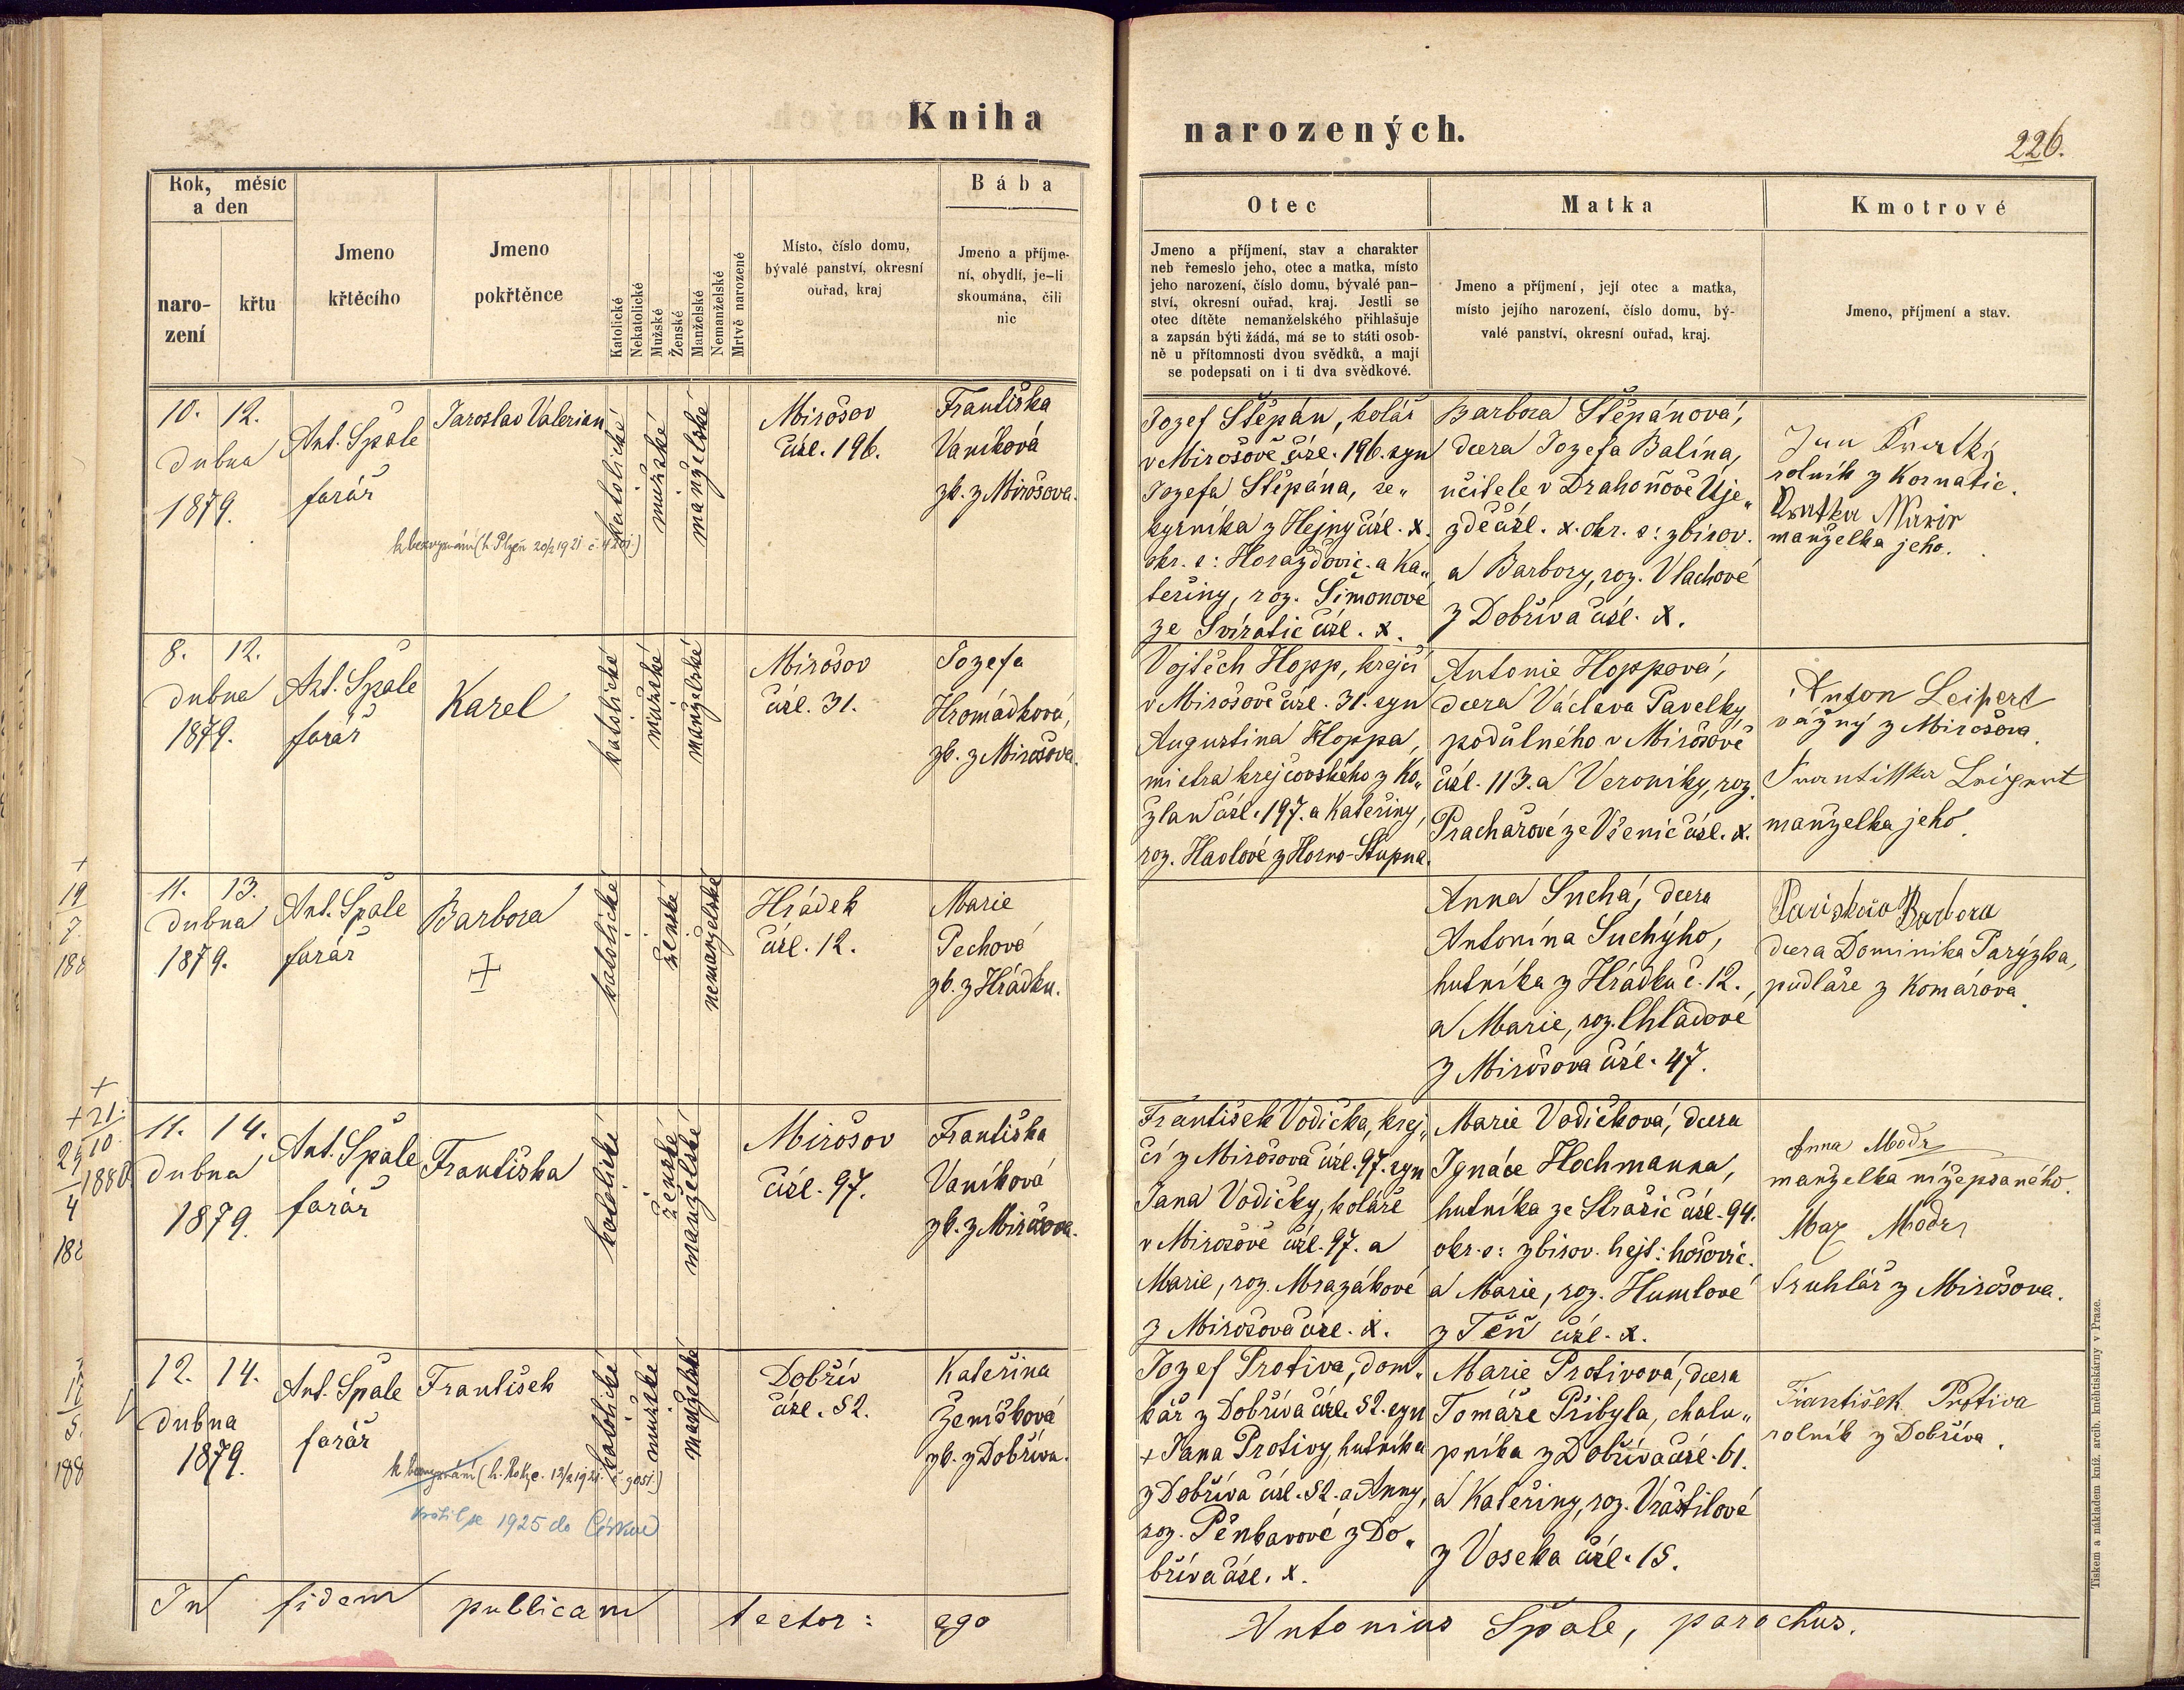 Kniha
narozených.
226.
Rok, měsíc
a den
naro-
zení
křtu
Jmeno
křtěcího
Jmeno
pokřtěnce
Katolické
Nekatolické
Mužské
Ženské
Manželské
Nemanželské
Mrtvě narozené
Místo, číslo domu,
bývalé panství, okresní
ouřad, kraj
Bába
Jmeno a příjme-
ní, obydlí, je-li
skoumána, čili
nic
Otec
Jmeno a příjmení, stav a charakter
neb řemeslo jeho, otec a matka, místo
jeho narození, číslo domu, bývalé pan-
ství, okresní ouřad, kraj. Jestli se
otec dítěte nemanželského přihlašuje
a zapsán býti žádá, má se to státi osob-
ně u přítomnosti dvou svědků, a mají
se podepsati on i ti dva svědkové.
Matka
Jmeno a příjmení, její otec a matka,
místo jejího narození, číslo domu, bý-
valé panství, okresní ouřad, kraj.
Kmotrové
Jmeno, příjmení a stav.
10. 12.
dubna
1879.
Ant. Špale
farář
Jaroslav Valerian
katolické
mužské
manželské
Mirošov
čísl. 196.
Františka
Vaníková
zk. z Mirošova.
Jozef Štěpán, kolář
v Mirošově čísl. 196. syn
Jozefa Štěpána, se„
kyrníka z Hejny čísl. x.
okr. s: Horažďovic. a Ka„
teřiny, roz. Šimonové
ze Svíratic čísl. x.
Barbora Štěpánová,
dcera Jozefa Balína,
učitele v Drahoňově Úje„
zdě čísl. x. okr. s: zbirov.
a Barbory, roz. Vlachové
z Dobříva čísl. x.
rolník z Kornatic.
manželka jeho.
8. 12.
dubna
1879.
Ant. Špale
farář
Karel
katolické
mužské
manželské
Mirošov
čísl. 31.
Jozefa
Hromádková,
zk. z Mirošova.
Vojtěch Hopp, krejčí
v Mirošově čísl. 31. syn
Augustina Hoppa,
mistra krejčovského z Ko„
žlan čísl. 197. a Kateřiny,
roz. Havlové z Horno-Stupna.
Antonie Hoppová,
dcera Václava Pavelky,
podůlného v Mirošově
čísl. 113. a Veroniky, roz.
Prachařové ze Všenic čísl. x.
Anton Leipert
vážný z Mirošova.
Frantisska Leipert
manželka jeho.
11. 13.
dubna
1879.
Ant. Špale
farář
Barbora
+
katolické
ženské
nemanželské
Hrádek
čísl. 12.
Marie
Pechová
zk. z Hrádku.
Anna Suchá, dcera
Antonína Suchýho,
hutníka z Hrádku č. 12.,
a Marie, roz. Chladové
z Mirošova čísl. 47.
Barbora
dcera Dominika Parýzka,
pudláře z Komárova.
11. 14.
dubna
1879.
Ant. Špale
farář
Františka
katolické
ženské
manželské
Mirošov
čísl. 97.
Františka
Vaníková
zk. z Mirošova.
František Vodička, krej„
čí z Mirošova čísl. 97. syn
Jana Vodičky, koláře
v Mirošově čísl. 97. a
Marie, roz. Mrazákové
z Mirošova čísl. x.
Marie Vodičková, dcera
Ignáce Hochmanna,
hutníka ze Strašic čísl. 94.
okr. s: zbirov. hejt: hořovic.
a Marie, roz. Humlové
z Těň čísl. x.
Anna Modr
manželka nížepsaného.
Max Modr
truhlář z Mirošova.
12. 14.
dubna
1879.
Ant. Špale
farář
František
vrátil se 1925 do Církve
katolické
mužské
manželské
Dobřív
čísl. 52.
Kateřina
Zemíšková
zk. z Dobříva.
Jozef Protiva, dom„
kář z Dobříva čísl. 52. syn
+ Jana Protivy, hutníka
z Dobříva čísl. 52. a Anny,
roz. Pěnkavové z Do„
bříva čísl. x.
Marie Protivová, dcera
Tomáše Přibyla, chalu„
pníka z Dobříva čísl. 61.
a Kateřiny, roz. Vrástilové
z Voseka čísl. 15.
František Protiva
rolník z Dobříva.
In fidem publicam testor: ego
Antonius Špale, parochus.
Tiskem a nákladem kníž. arcib. knihtiskárny v Praze.